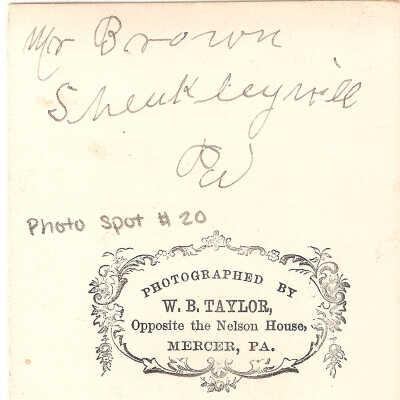 Mr Brown
Sheukleyvill
Pa
Photo Spot # 20
PHOTOGRAPHED BY
W. B. TAYLOR,
Opposite the Nelson House,
MERCER, PA.